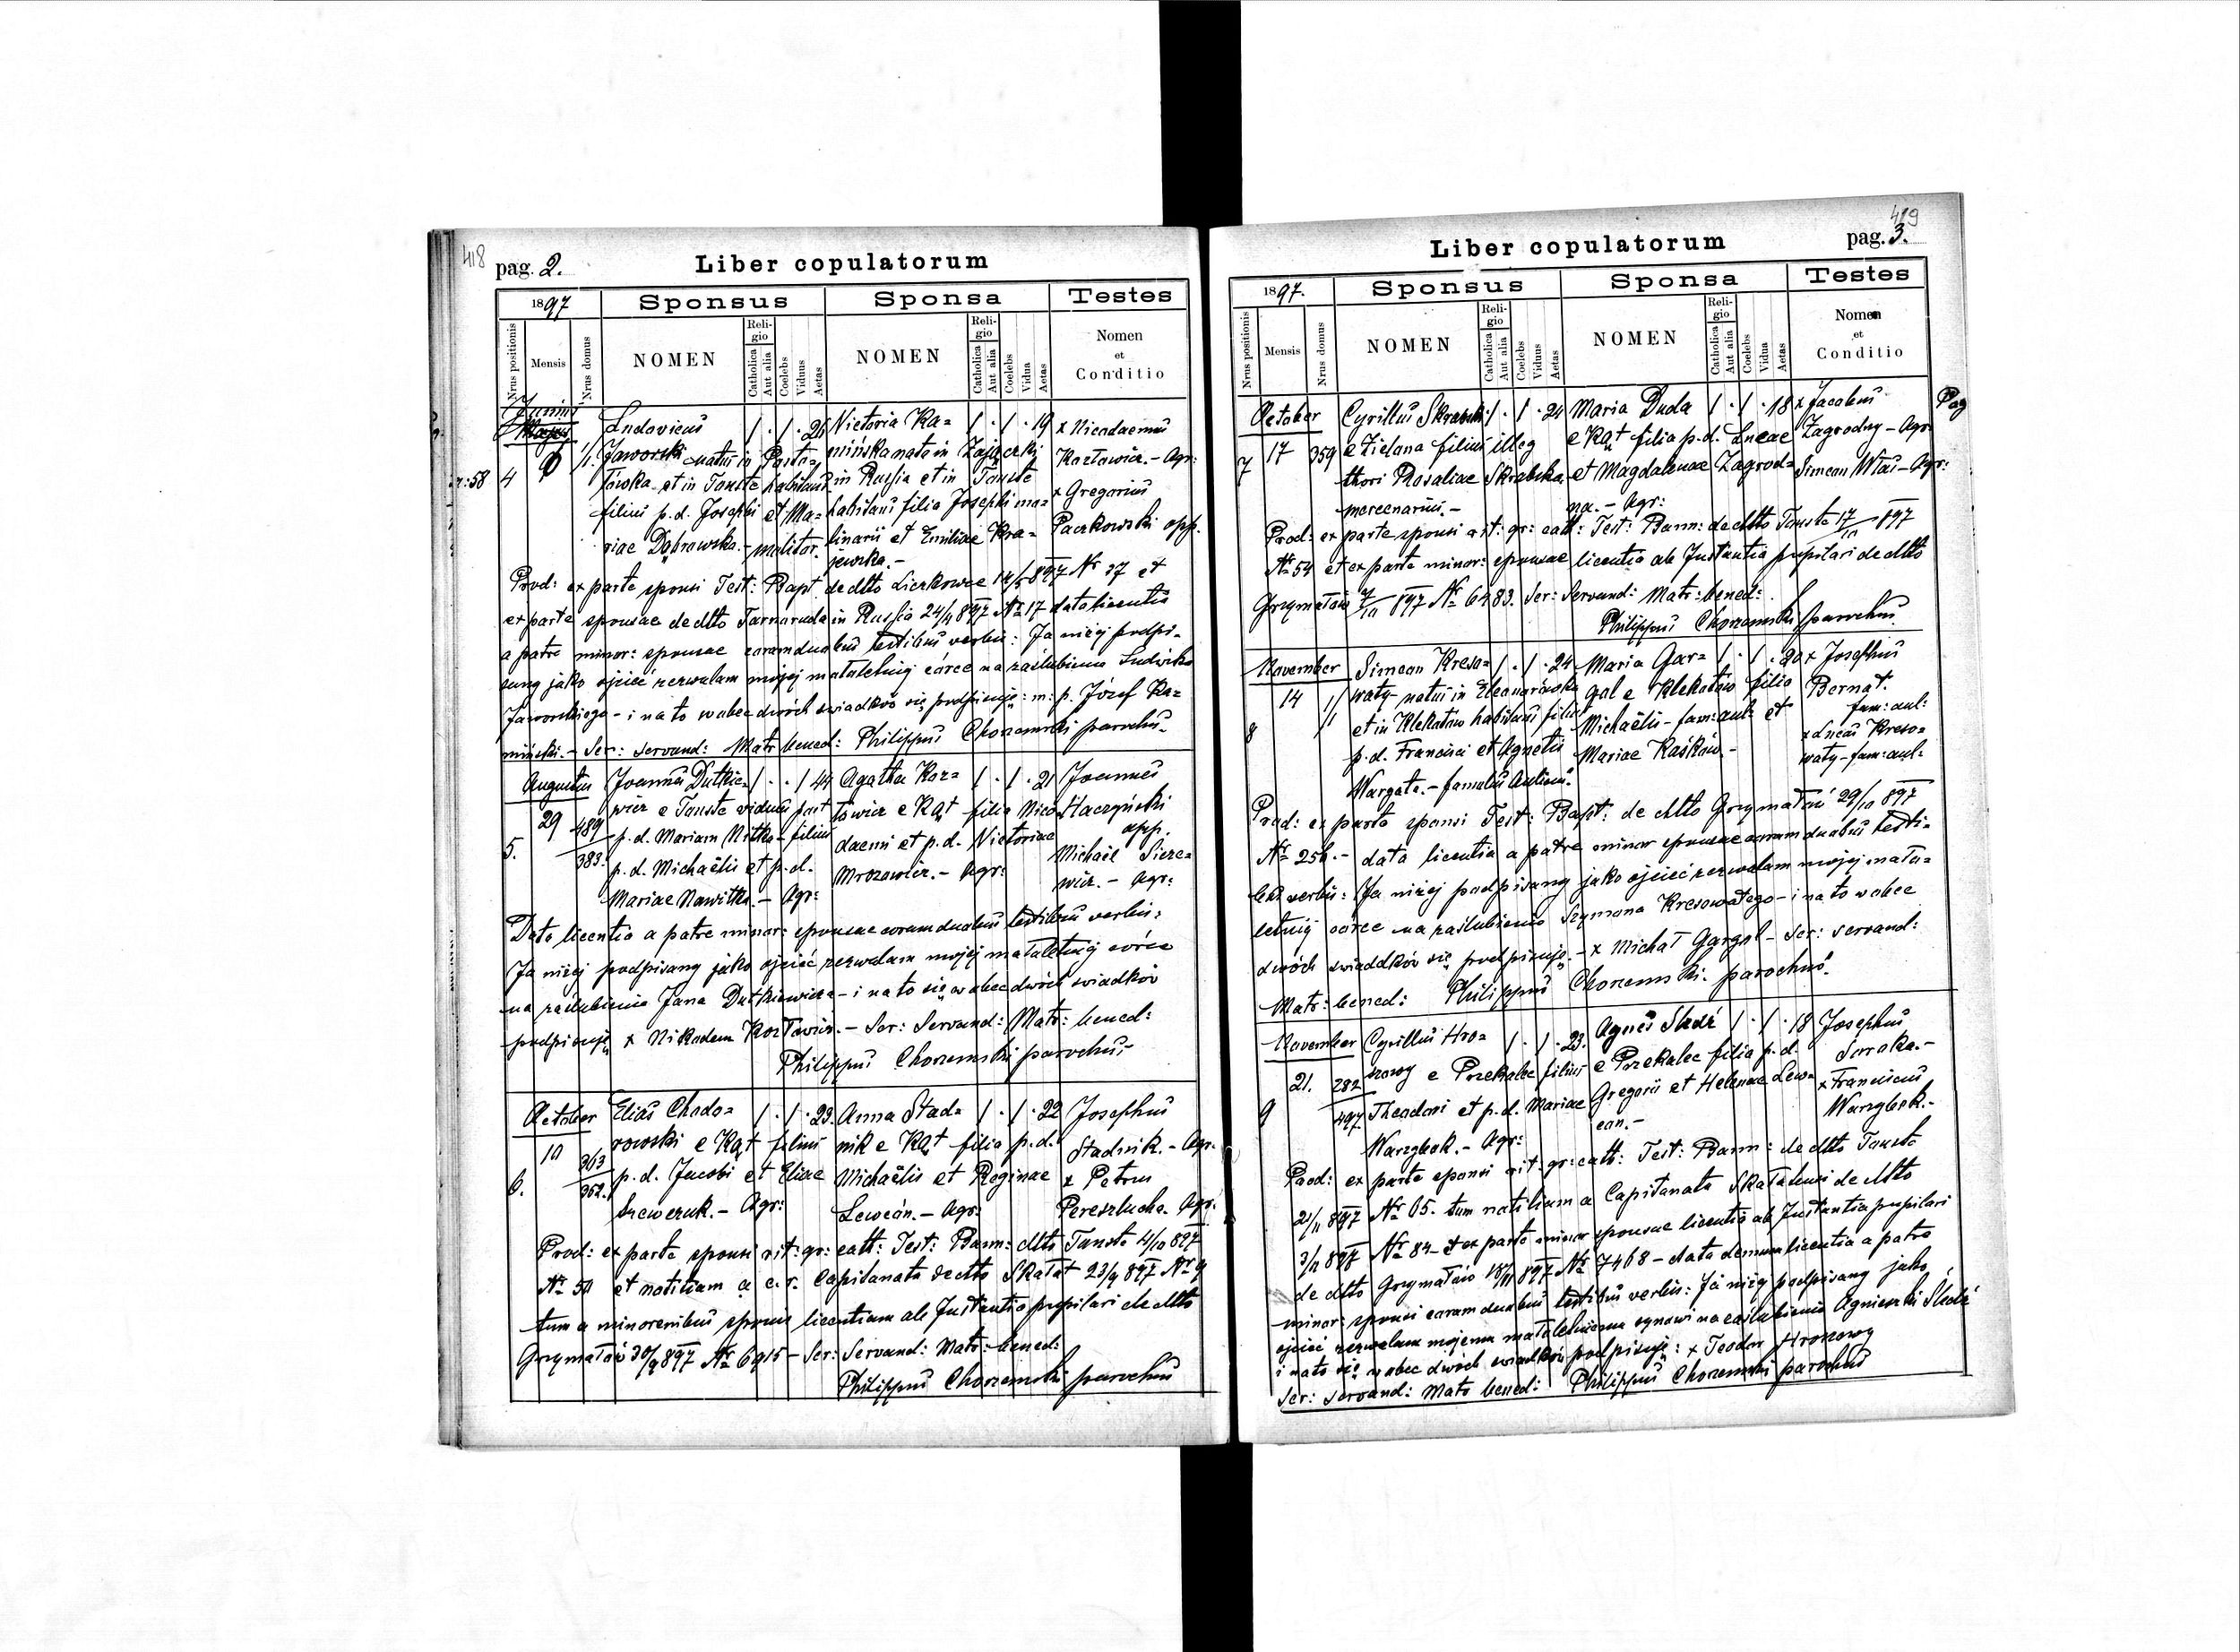 418
pag. 2.
Liber copulatorum
1897
Sponsus
Sponsa
Testes
Nrus positionis
Mensis
Nrus domus
NOMEN
Religio
Catholica
Aut alia
Coelebs
Viduus
Aetas
NOMEN
Religio
Catholica
Aut alia
Coelebs
Vidua
Aetas
Nomen
et
Conditio
Junius Ludovicus 1 · 1 · 24 Victoria Ka= 1 · 1 · 19 x Nicodaemus
4 Jaworski natus in Posta= mińska nata in Zajączki Kozłowicz. - Agr:
fówka et in Touste habitans in Russia et in Touste
filius p.d. Josephi et Ma= habitans filia Josephi mo= x Gregorius
riae Dąbrowska. - molitor. linarii et Emiliae Kra= Paczkowski opp.
jewska. -
Prod: ex parte sponsi Test: Bapt de dtto Liczkowce 14/5 897 Nr 37 et
ex parte sponsae de dtto Tarnoruda in Russia 24/4 897 Nr 17 data licentia
a patre minor: sponsae coram duobus testibus verbis: Ja niżej podpi-
sany jako ojciec zezwalam mojej małoletniej córce na zaślubienie Ludwika
Jaworskiego - i na to wobec dwóch świadków się podpisuję: m: p. Józef Ka=
miński. - Ser: servand: Matr bened: Philippus Chorzemski parochus.
Augustus Joannes Dutkie= 1 · · 1 44 Agatha Koz= 1 · 1 · 21 Joannes
29 489/383. wicz e Touste viduus post łowicz e Kąt filia Nico= Haczyński
5. p.d. Mariam Nitka - filius daemi et p.d. Victoriae opp.
p.d. Michaëlis et p.d. Mrozowicz. - Agr: Michaël Sieze=
Mariae Nawitka. - Agr: wicz. - Agr:
Data licentia a patre minor: sponsae coram duobus testibus verbis:
Ja niżej podpisany jako ojciec zezwalam mojej małoletniej córce
na zaślubienie Jana Dutkiewicza - i na to się wobec dwóch świadków
podpisuję x Nikodem Kozłowicz. - Ser: Servand: Matr: bened:
Philippus Chorzemski parochus. -
October Elias Chodo= 1 · 1 · 23. Anna Stad= 1 · 1 · 22 Josephus
10 363/362. rowski e Kąt filius nik e Kąt filia p.d. Stadnik. - Agr.
6. p.d. Jacobi et Eliae Michaëlis et Reginae x Petrus
Szewczuk. - Agr: Lewcún. - Agr: Pereszlucha. Agr:
Prod: ex parte sponsi rit: gr: cath: Test: Bann: dtto Touste 4/10 897
Nr 50 et notitiam a c. r. Capitanatu de dtto Skałat 23/9 897 Nr 9
tum a minorenibus sponsis licentiam ab Instantia pupilari de dtto
Grzymałów 30/9 897 Nr 6915 - Ser: Servand: Matr: bened:
Philippus Chorzemski parochus
419
pag. 3.
Liber copulatorum
1897.
Sponsus
Sponsa
Testes
Nrus positionis
Mensis
Nrus domus
NOMEN
Religio
Catholica
Aut alia
Coelebs
Viduus
Aetas
NOMEN
Religio
Catholica
Aut alia
Coelebs
Vidua
Aetas
Nomen
et
Conditio
October Cyrillus Skrabski 1 · 1 · 24 Maria Duda 1 · 1 · 18 x Jacobus
7 17 359 e Zielona filius illeg e Kąt filia p.d. Lucae Zagrodny - Agr.
thori Rosaliae Skrabska et Magdalenae Zagrod= Simeon Wlas - Agr:
mercenarius. - na. - Agr:
Prod: ex parte sponsi rit: gr: cath: Test: Bann: de dtto Touste 17/10 897
Nr 54 et ex parte minor: sponsae licentia ab Instantia pupilari de dtto
Grzymałów 7/10 897 Nr 6483. Ser: Servand: Matr: bened:
Philippus Chorzemski parochus.
November Simeon Kreso= 1 · 1 · 24 Maria Gar= 1 · 1 · 20 x Josephus
14 waty - natus in Eleonorówka gal e Klekotów filia Bernat.
8 et in Klekotów habitans filius Michaëlis - fam: aul: et fam: aul:
p.d. Francisci et Agnetis Mariae Kaśków. - x Lucas Kreso=
Wargata. - famulus aulicus. waty - fam: aul:
Prod: ex parte sponsi Test: Bapt: de dtto Grzymałów 29/10 897
Nr 256. - data licentia a patre minor sponsae coram duobus testi=
bus verbis: Ja niżej podpisany jako ojciec zezwalam mojej mało=
letniej córce na zaślubienie Szymona Kresowatego - i na to wobec
dwóch świadków się podpisuję. - x Michał Gargal - Ser: servand:
Matr: bened: Philippus Chorzemski parochus.
November Cyrillus Hro= 1 · 1 · 23. Agnes Śledź 1 · 1 · 18 Josephus
21. 282/497 zowy e Przekalec filius e Przekalec filia p.d. Soroka. -
9 Theodori et p.d. Mariae Gregorii et Helenae Lew= x Franciscus
Warzybok. - Agr: cun. - Warzybok. -
Prod: ex parte sponsi rit: gr: cath: Test: Bann: de dtto Touste
21/11 897 Nr 65. tum notitiam a Capitanatu Skałatensi de dtto
3/11 897 Nr 84 - et ex parte minor sponsae licentia ab Instantia pupilari
de dtto Grzymałów 18/11 897 Nr 7468 - data demum licentia a patre
minor: sponsi coram duobus testibus verbis: Ja niżej podpisany jako
ojciec zezwalam mojemu małoletniemu synowi na zaślubienie Agnieszki Śledź
i na to się wobec dwóch świadków podpisuję: x Teodor Hrozowy
Ser: servand: Matr bened: Philippus Chorzemski parochus